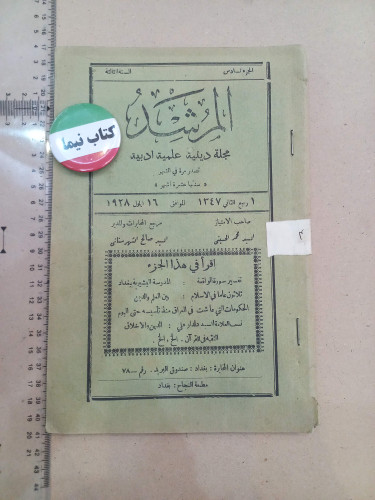 الجزء السادس
السنة الثالثة
المرشد
مجلة دينية علمية ادبية
تصدر مرة في الشهر
« سنتها عشرة اشهر »
١ ربيع الثاني ١٣٤٧ الموافق ١٦ ايلول ١٩٢٨
صاحب الامتياز
السيد محمد الحسيني
مرجع المخابرات والمدير
السيد صالح الشهرستاني
اقرأ في هذا الجزء
تفسير سورة الواقعة المدرسة البشيرية ببغداد
ثلاثون عاما في الاسلام : بين العلم والدين
الحكومات التي عاشت في العراق منذ تأسيسه حتى اليوم
نسب العلامة السيد دلدار علي : الدين والاخلاق
الخ ، الخ
عنوان المخابرة : بغداد : صندوق البريد . رقم ٧٨
مطبعة النجاح : بغداد
کتاب نیما